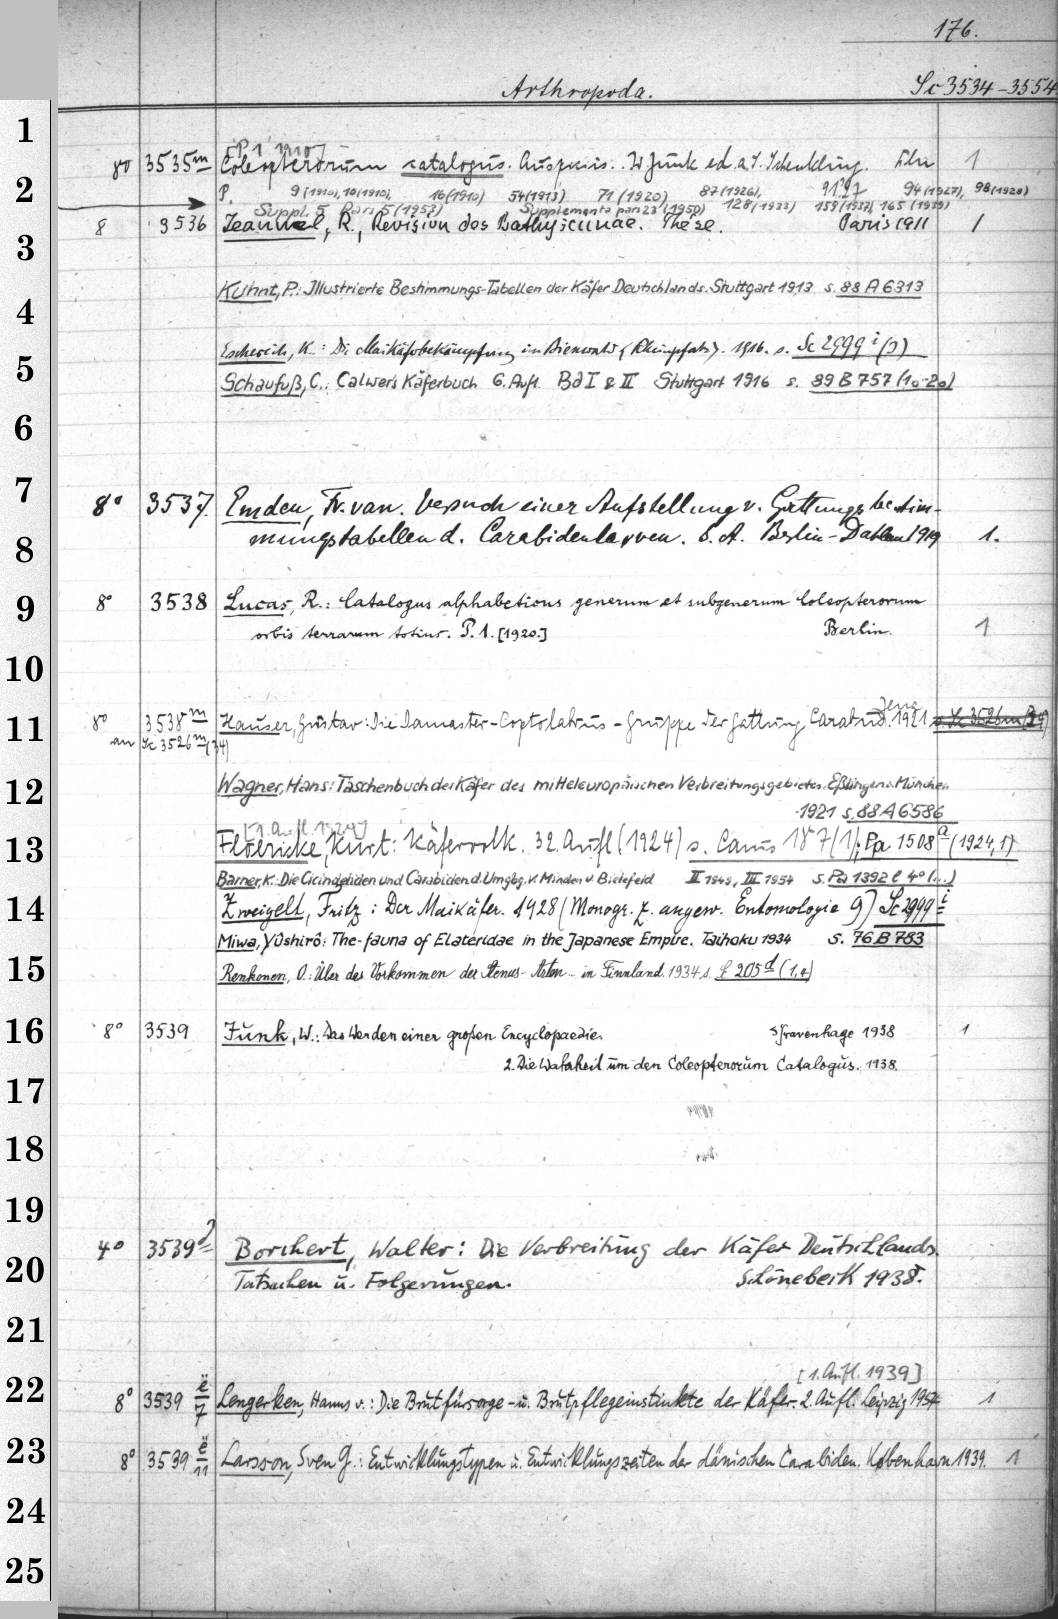 176.
Arthropoda. Sc 3534-3554
1
[P. 1 1910]
8° 3535m Coleopterorum catalogus. Auspiciis .. W. Junk ed. a S. Schenkling. 1
2
P. 9 (1910), 10 (1910), 16 (1910) 54 (1913) 71 (1920) 87 (1926), 91.27 94 (1927), 98 (1928)
Suppl. 5 Pars 5 (1952) Supplementa pars 23 (1950) 128 (1933) 159 (1937), 165 (1939)
8 3536 Jeannel, R., Revision des Bathysciinae. Thèse. Paris 1911 1
3
Kuhnt, P.: Illustrierte Bestimmungs-Tabellen der Käfer Deutschlands. Stuttgart 1913 s. 88 A 6313
4
Escherich, K.: Die Maikäferbekämpfung im Bienwald (Rheinpfalz). 1916. s. Sc 2999 i (3)
5
Schaufuß, C.: Calwers Käferbuch 6. Aufl. Bd I & II Stuttgart 1916 s. 89 B 757 (1a-2a)
6
7
8° 3537. Emden, Fr. van. Versuch einer Aufstellung v. Gattungsbestim-
8
mungstabellen d. Carabidenlarven. S. A. Berlin-Dahlem 1919 1.
9
8° 3538 Lucas, R.: Catalogus alphabeticus generum et subgenerum Coleopterorum
orbis terrarum totius. P. 1. [1920.] Berlin. 1
10
Jena
11
8° 3538m Hauser, Gustav: Die Damaster-Coptolabrus-Gruppe der Gattung Carabus. 1921 s. Sc 3526m (34)
an Sc 3526m (34)
12
Wagner, Hans: Taschenbuch der Käfer des mitteleuropäischen Verbreitungsgebietes. Eßlingen u. München
1921 s. 88 A 6586
[1. Aufl. 1924]
13
Floericke, Kurt: Käfervolk. 32. Aufl (1924) s. Cams 187 (1); Pp 1508 a (1924, 1)
Barner, K.: Die Cicindeliden und Carabiden d. Umgbg. v. Minden u. Bielefeld II 1949, III 1954 s. Pa 1392 l 4° (...)
14
Zweigelt, Fritz: Der Maikäfer. 1928 (Monogr. z. angew. Entomologie 9) Sc 2999 i
Miwa, Yûshirô: The fauna of Elateridae in the Japanese Empire. Taihoku 1934 s. 76 B 783
15
Renkonen, O.: Über das Vorkommen der Stenus-Arten .. in Finnland. 1934. s. L 205 d (1,4)
16
8° 3539 Junk, W.: Das Werden einer großen Encyclopaedie. s'Gravenhage 1938 1
2. Die Wahrheit um den Coleopterorum Catalogus. 1938.
17
18
19
20
4° 3539 d Borchert, Walter: Die Verbreitung der Käfer Deutschlands.
Tatsachen u. Folgerungen. Schönebeck 1938.
21
[1. Aufl. 1939]
22
8° 3539 e/7 Lengerken, Hanns v.: Die Brutfürsorge- u. Brutpflegeinstinkte der Käfer. 2. Aufl. Leipzig 1954 1
23
8° 3539 e/11 Larsson, Sven G.: Entwicklungstypen u. Entwicklungszeiten der dänischen Carabiden. København 1939. 1
24
25